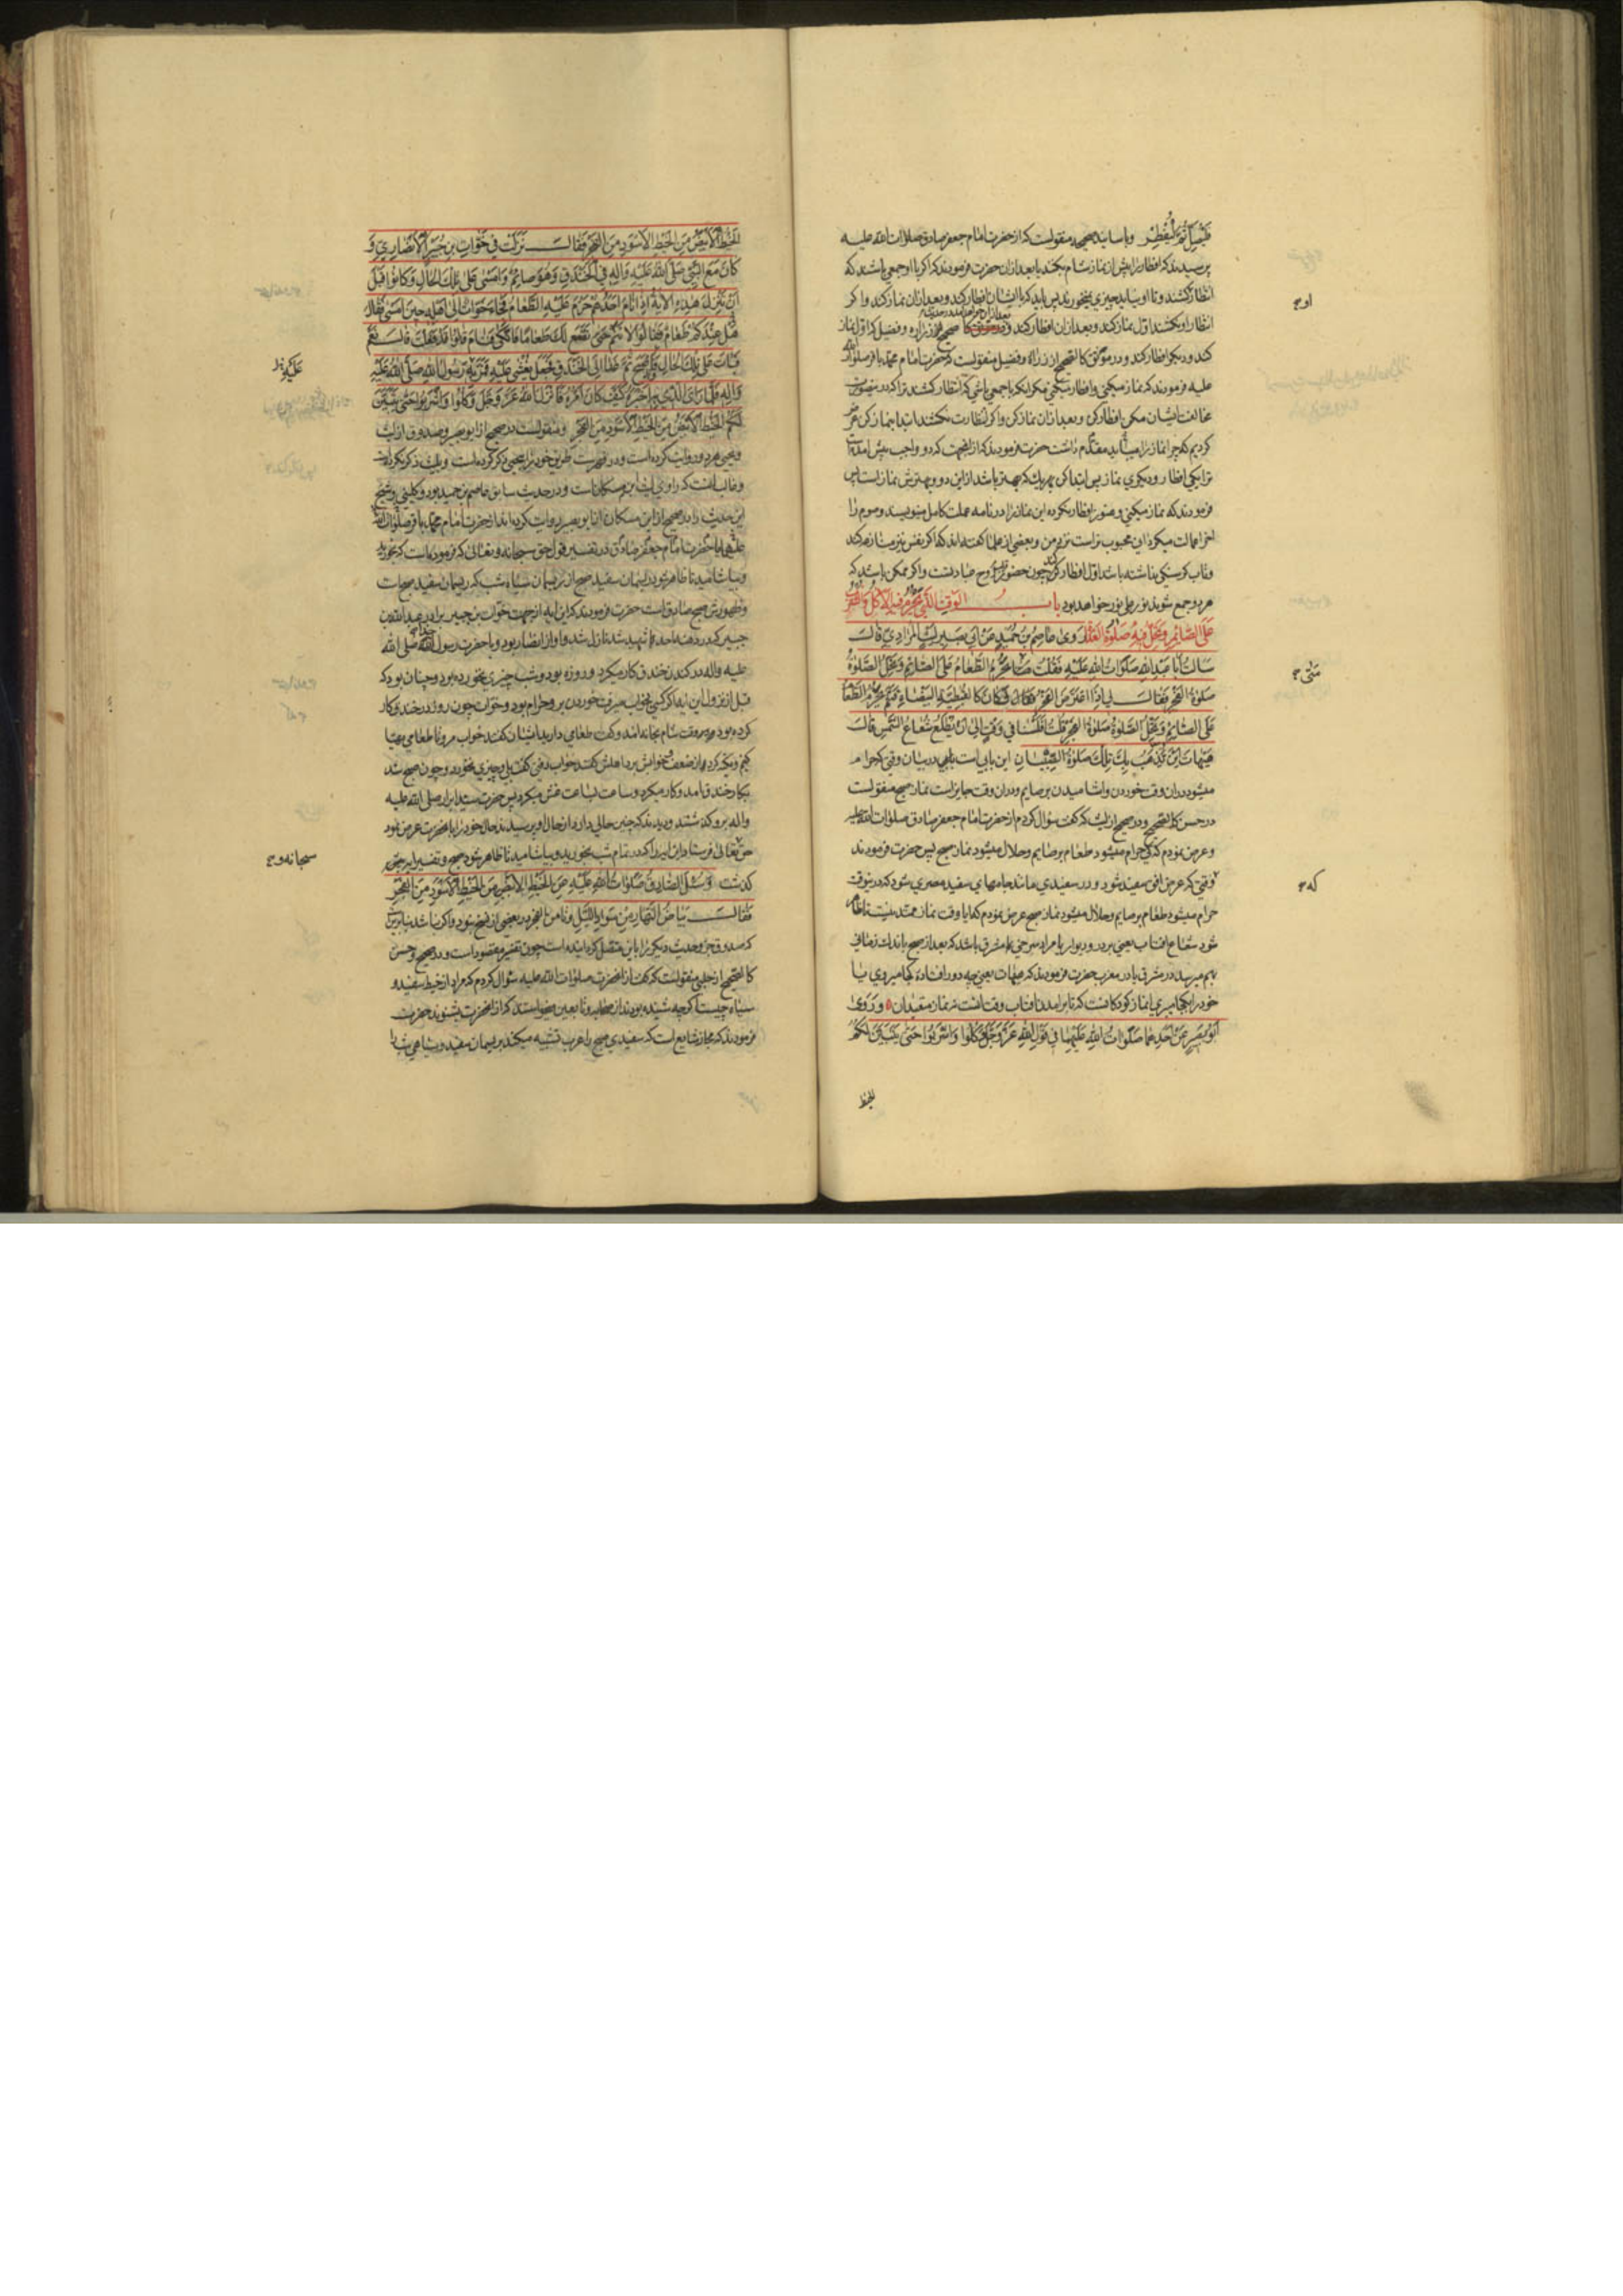 فلیصل ثم لیفطر و باسانید صحیحه منقولست که از حضرت امام جعفر صادق صلوات الله علیه
پرسیدند که افطار را پیش از نماز شام بکند یا بعد از ان حضرت فرمودند که اگر با او جمعی باشند که
انتظار کشند و تا او نیاید چیزی نخورند پس باید که با ایشان افطار کند و بعد از ان نماز کند و اگر
انتظار او نکشند اول نماز کند و بعد از ان افطار کند و زراره و فضیل که اول نماز
کند و دیگر افطار کند و در موثق کالصحیح از زراره و فضیل منقولست که حضرت امام محمد باقر صلوات الله
علیه فرمودند که نماز میکنی و افطار میکنی مگر آنکه با جمعی باشی که انتظار کشند ترا که درینصورت
مخالفت ایشان مکن افطار کن و بعد از ان نماز کن و اگر انتظارت نکشند ابتدا بنماز کن عرض
کردیم که چرا نماز را میباید مقدم داشت حضرت فرمودند که از اینجهت که دو واجب پیش امده است
ترا یکی افطار و دیگری نماز پس ابتدا کن بهر یک که بهتر باشد از این دو و بهترش نماز است پس
فرمودند که نماز میکنی و هنوز افطار نکرده این نماز را در نامه عملت کامل مینویسند و صوم را
این محبوب تر است نزد من و بعضی از علما گفته اند که اگر نفس نیز منازعه کند
و تاب گرسنگی نداشته باشد اول افطار کند چون حضور قلب روح عبادتست و اگر ممکن باشد که
هر دو جمع شوند نور علی نور خواهد بود باب الوقت الذی یحرم فیه الاکل و الشرب
علی الصائم و تحل فیه صلوة الغداة روی عاصم بن حمید عن ابی بصیر لیث المرادی قالت
سالت ابا عبد الله صلوات الله علیه فقلت متی یحرم الطعام علی الصائم و تحل الصلوة
صلوة الفجر فقالت لی اذا اعترض الفجر فکان کالقبطیة البیضاء فثم یحرم الطعام
علی الصائم و تحل الصلوة صلوة الفجر قلت افلسنا فی وقت الی ان یطلع شعاع الشمس قالت
هیهات این تذهب بک تلک صلوة الصبیان این بابیست در بیان وقتی که حرام
میشود در ان وقت خوردن و اشامیدن بر صایم و در ان وقت جایز است نماز صبح منقولست
در حسن کالصحیح و در صحیح از لیث که گفت سؤال کردم از حضرت امام جعفر صادق صلوات الله علیه
و عرض نمودم که کی حرام میشود طعام بر صایم و حلال میشود نماز صبح پس حضرت فرمودند
وقتی که عرض افق سفید شود و در سفیدی مانند جامهای سفید مصری شود که درینوقت
حرام میشود طعام بر صایم و حلال میشود نماز صبح عرض نمودم که ایا وقت نماز ممتد نیست تا ظاهر
شود شعاع افتاب یعنی بر در و دیوار یا مراد سرخی مشرق باشد که بعد از صبح باندک زمانی
بهم میرسد در مشرق یا در مغرب حضرت فرمودند که هیهات یعنی چه دور افتاده کجا میروی یا
خود را بکجا میبری این نماز کودکانست که تا برامدن افتاب وقت انست نه نماز متقیدان و روی
ابو بصیر عن احدهما صلوات الله علیهما فی قول الله عز و جل و کلوا و اشربوا حتی یتبین لکم
الخیط
او ج
متی ج
که ج
الخیط الابیض من الخیط الاسود من الفجر فقالت نزلت فی خوات بن جبیر الانصاری و
کان مع النبی صلی الله علیه و اله فی الخندق و هو صائم و امسی علی تلک الحال و کانوا قبل
ان تنزل هذه الایة اذا نام احدهم حرم علیه الطعام فجاء خوات الی اهله حین امسی فقال
هل عندکم طعام فقالوا لا تنم حتی نصنع لک طعاما فاتکی فنام فقالوا قد فعلت قالت نعم
فبات علی تلک الحال فاصبح ثم غدا الی الخندق فجعل یغشی علیه فمر به رسول الله صلی الله علیه
و اله فلما رای الذی به اخبره کیف کان امره فانزل الله عز و جل و کلوا و اشربوا حتی یتبین
لکم الخیط الابیض من الخیط الاسود من الفجر و منقولست در صحیح از ابو بصیر و صدوق از لیث
و یحیی هر دو روایت کرده است و در فهرست طریق خود را بیحیی ذکر کرده است و بلیث ذکر نکرده است
و غالب انست که راوی لیث ابن مسکان است و در حدیث سابق عاصم بن حمید بود و کلینی و شیخ
این حدیث را در صحیح از ابن مسکان از ابو بصیر روایت کرده اند از حضرت امام محمد باقر صلوات الله
علیهما یا حضرت امام جعفر صادق در تفسیر قول حق سبحانه و تعالی که فرموده است که بخورید
و بیاشامید تا ظاهر شود ریسمان سفید صبح از ریسمان سیاه شب که ریسمان سفید صبح است
و ظهورش صبح صادق است حضرت فرمودند که این ایه از جهت خوات بن جبیر برادر عبد الله بن
جبیر که در احد شهید شد نازل شد و او از انصار بود و با حضرت رسول الله صلی الله
علیه و اله در کندن خندق کار میکرد و روزه بود و شب چیزی نخورده بود و چنان بود که
قبل از نزول این ایه اگر کسی بخواب میرفت خوردن بر او حرام بود و خوات چون روز در خندق کار
کرده بود وقت شام بخانه امد و گفت طعامی دارید ایشان گفتند خواب مرو تا طعامی مهیا
کنیم و تکیه کرد و از ضعف خوابش برد اهلش گفتند خواب رفتی گفت بلی و چیزی نخورد و چون صبح شد
بکار خندق امد و کار میکرد و ساعت بساعت غش میکرد پس حضرت سید ابرار صلی الله علیه
و اله برو گذشتند و دیدند که چنین حالی دارد از حال او پرسیدند حال خود را بانحضرت عرض نمود
حق تعالی فرستاد این ایه را که در تمام شب بخورید و بیاشامید تا ظاهر شود صبح و تفسیر ایه
گذشت و سئل الصادق صلوات الله علیه عن الخیط الابیض من الخیط الاسود من الفجر
فقالت بیاض النهار من سواد اللیل
که صدوق جزو حدیث دیگر را باین متصل گردانیده است چون تفسیر مقصود است و در صحیح و حسن
کالصحیح از حلبی منقولست که گفت از انحضرت صلوات الله علیه سؤال کردم که مراد از خیط سفید و
سیاه چیست اگر چه شنیده بودند از صحابه و تابعین میخواستند که از انحضرت بشنوند حضرت
فرمودند که مجاز شایع است که سفیدی صبح را عرب تشبیه میکند بریسمان سفید و سیاهی شب را
سبحانه و ج